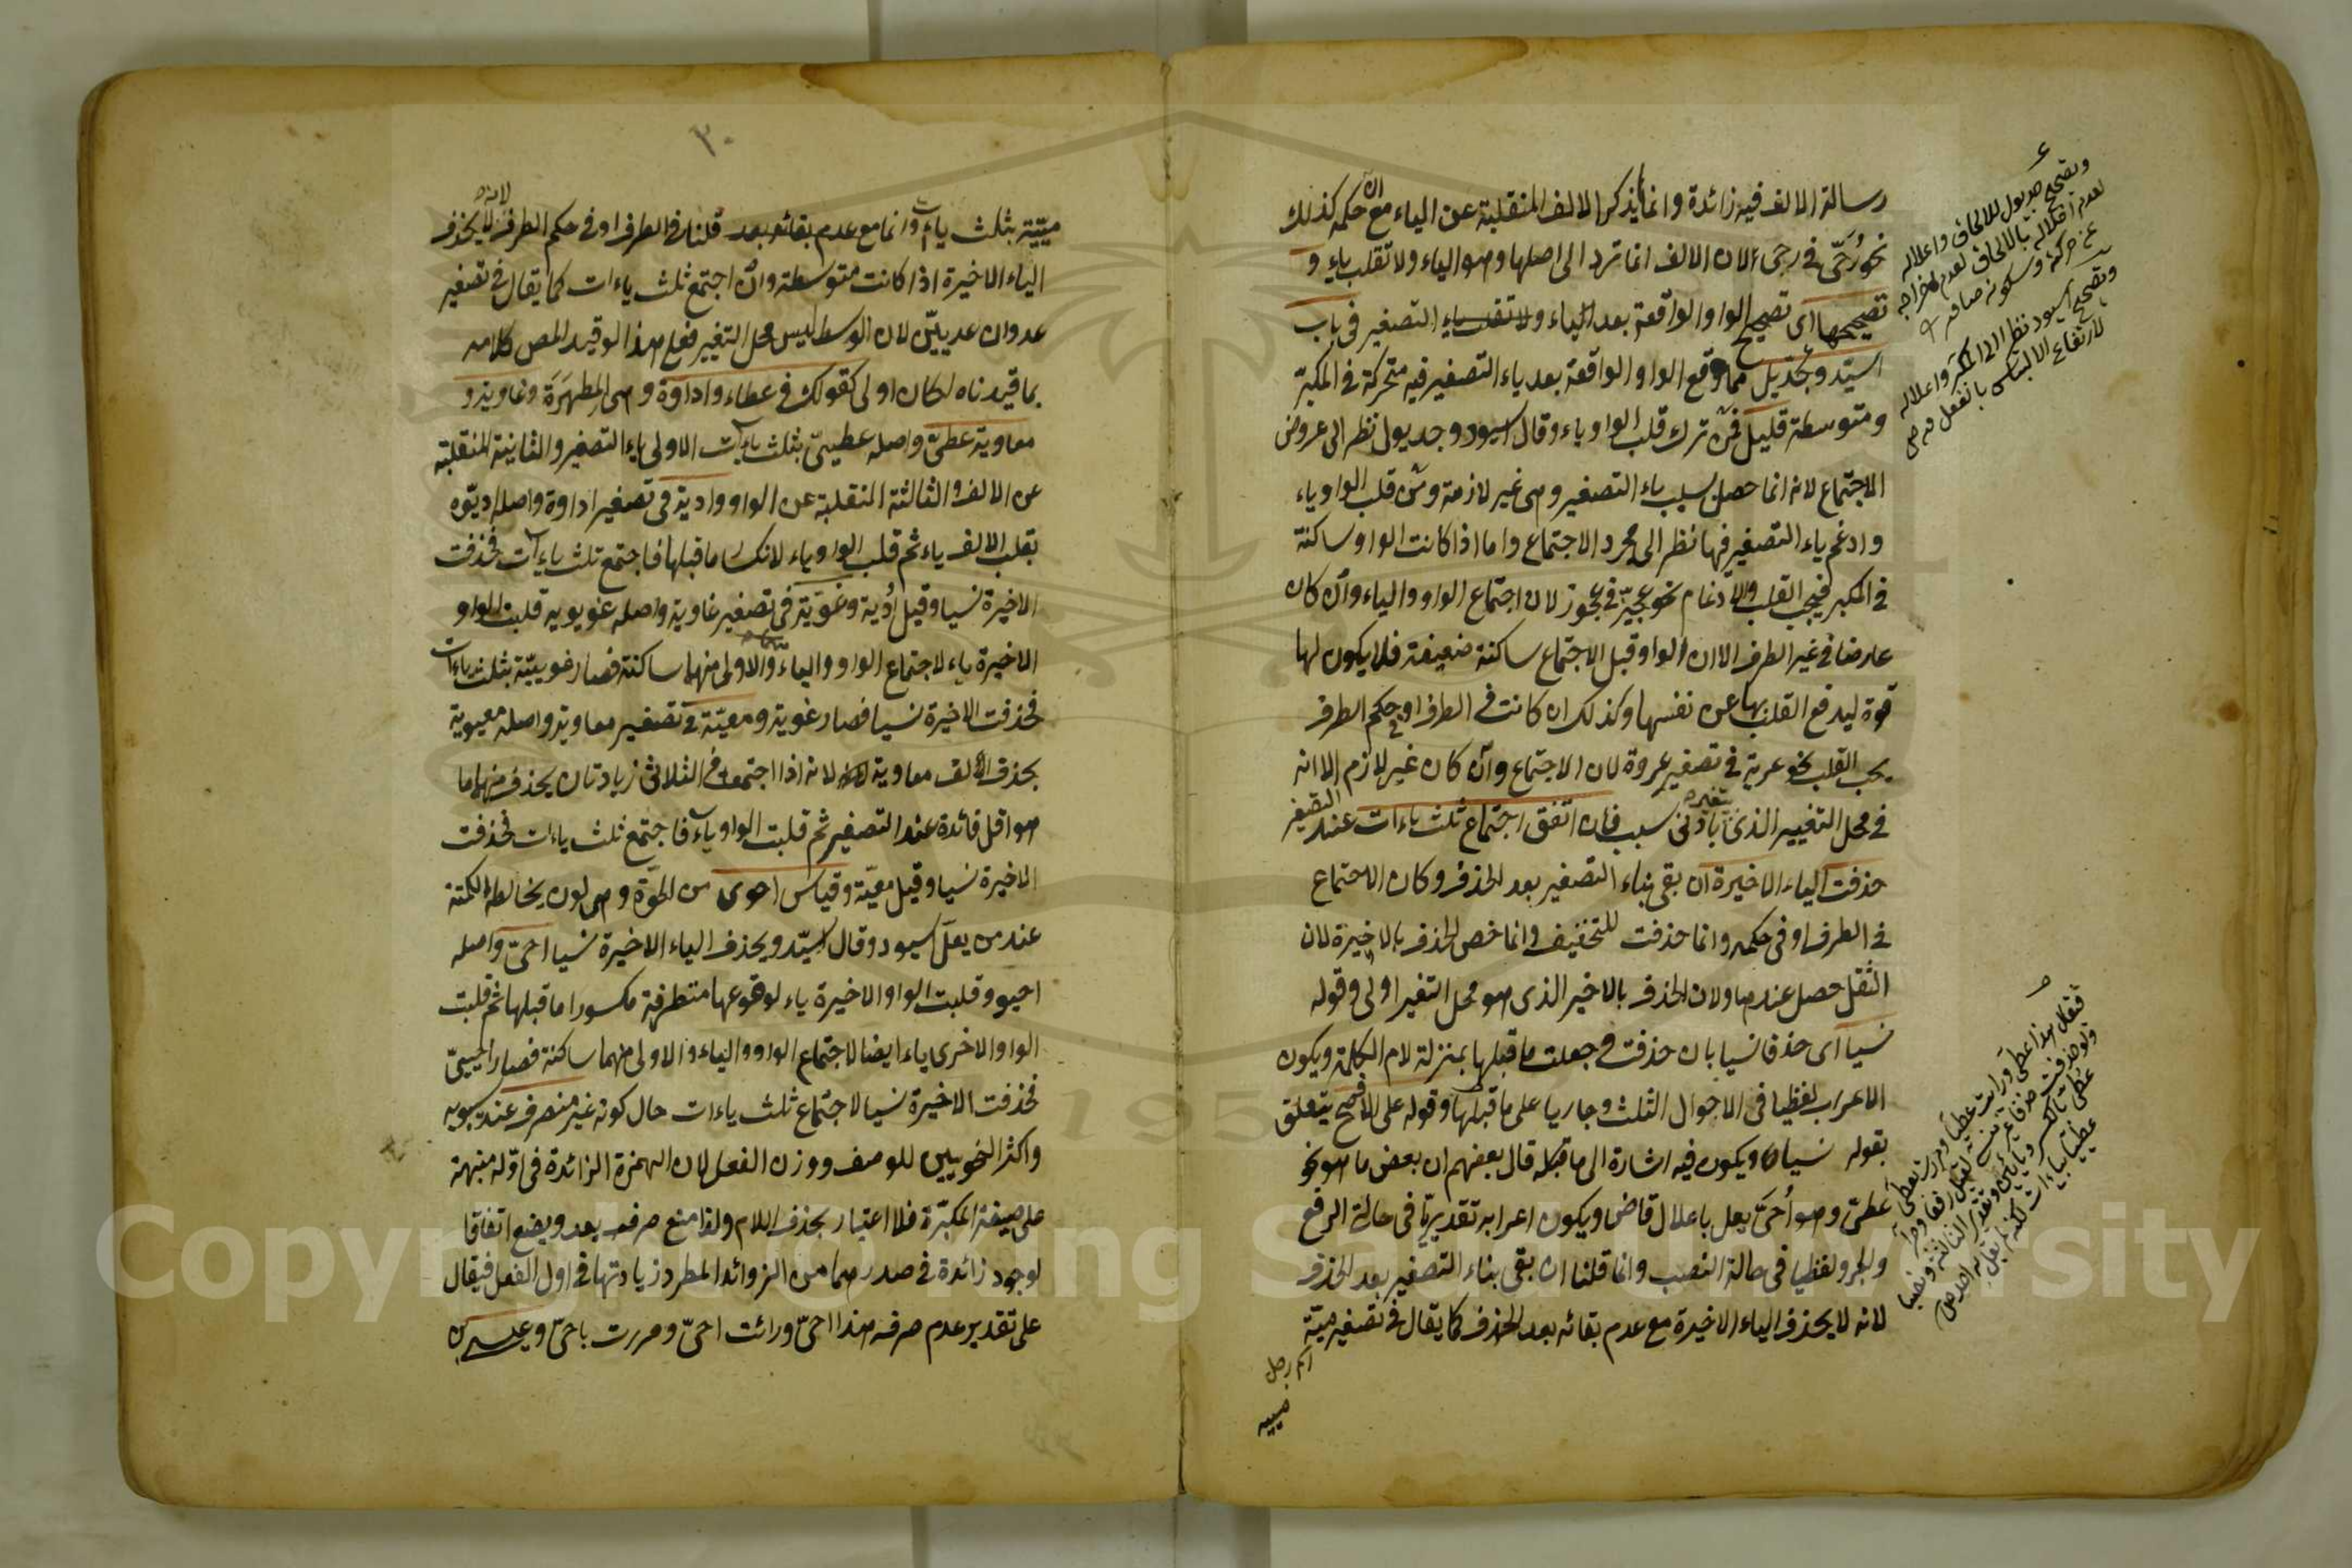 رسالة الالف فيه زائدة وانما يذكر الالف المنقلبة عن الياء مع ان حكمه كذلك
نحو رُحَيّ في رحى لان الالف انما ترد الى اصلها وهو الياء ولا تقلب ياء و
تصحيحها اى تصحيح الواو الواقعة بعد الياء ولا تقلب ياء التصغير فى باب
اسيّد وجُديل مما وقع الواو الواقعة بعد ياء التصغير فيه متحركة فى المكبّر
ومتوسطة قليل فمن ترك قلب الواو ياء وقال اسيود وجديول نظر الى عروض
الاجتماع لانه انما حصل بسبب ياء التصغير وهى غير لازمة ومن قلب الواو ياء
وادغم ياء التصغير فيها نظر الى مجرد الاجتماع واما اذا كانت الواو ساكنة
فى المكبر فيجب القلب والادغام نحو عجيّز فى عجوز لان اجتماع الواو والياء وان كان
عارضا فى غير الطرف الا ان الواو قبل الاجتماع ساكنة ضعيفة فلا يكون لها
قوة ليدفع القلب بها عن نفسها وكذلك ان كانت فى الطرف او فى حكم الطرف
يجب القلب نحو عرية فى تصغير عروة لان الاجتماع وان كان غير لازم الا انه
فى محل التغيير الذى يتغير بادنى سبب فان اتفق اجتماع ثلث ياءات عند التصغير
حذفت الياء الاخيرة ان بقى بناء التصغير بعد الحذف وكان الاجتماع
فى الطرف او فى حكمه وانما حذفت للتخفيف وانما خص الحذف بالاخيرة لان
الثقل حصل عندها ولان الحذف بالاخير الذى هو محل التغير اولى وقوله
نسيا اى حذفا نسيا بان حذفت وجعلت ما قبلها بمنزلة لام الكلمة ويكون
الاعراب لفظيا فى الاحوال الثلث وجاريا على ما قبلها وقوله على الافصح يتعلق
بقوله نسيا ويكون فيه اشارة الى ما قبله قال بعضهم ان بعض ما هو نحو
عطىّ وهو اُحَىّ يعل باعلال قاض ويكون اعرابه تقديريّا فى حالة الرفع
والجر ولفظيا فى حالة النصب وانما قلنا ان بقى بناء التصغير بعد الحذف
لانه لا يحذف الياء الاخيرة مع عدم بقائه بعد الحذف كما يقال فى تصغير ميّة
اسم رجل
مييه
وتصحيح جديول للالحاق واعلاله
وتصحيح اسيود نظر الى المكبر واعلاله
لارتفاع الالتباس بالفعل
فتقال هذا عطى ورايت عطيا ومررت بعطى
٣٠
مييّة بثلث ياءات وانما مع عدم بقائه بعد قلنا فى الطرف او فى حكم الطرف لانه لا يحذف
الياء الاخيرة اذا كانت متوسطة وان اجتمع ثلث ياءات كما يقال فى تصغير
عدوان عدييّن لان الوسط ليس محل التغيير فعلى هذا لو قيد المص كلامه
بما قيدناه لكان اولى كقولك فى عطاء واداوة وهى المطهَرَة وغاوية و
معاوية عطىّ واصله عطييّ بثلث ياءات الاولى ياء التصغير والثانية المنقلبة
عن الالف والثالثة المنقلبة عن الواو واديّة فى تصغير اداوة واصله اديّوه
بقلب الالف ياء ثم قلب الواو ياء لانكسار ما قبلها فاجتمع ثلث ياءات فحذفت
الاخيرة نسيا وقيل اُديّة وغويّة فى تصغير غاوية واصله غويوية قلبت الواو
الاخيرة ياء لاجتماع الواو والياء والاولى منهما ساكنة فصار غوييّة بثلث ياءات
فحذفت الاخيرة نسيا فصار غوية ومعيّة فى تصغير معاوية واصله معيوية
بحذف الف معاوية لانه اذا اجتمعت فى الثلاثى زيادتان يحذف منهما ما
هو اقل فائدة عند التصغير ثم قلبت الواو ياء فاجتمع ثلث ياءات فحذفت
الاخيرة نسيا وقيل معيّة وقياس احوى من الحوّة وهى لون يخالطه الكمتة
عند من يعل اسيود وقال اسيّد ويحذف الياء الاخيرة نسيا احىّ واصله
احيوو قلبت الواو الاخيرة ياء لوقوعها متطرفة مكسورا ما قبلها ثم قلبت
الواو الاخرى ياء ايضا لاجتماع الواو والياء والاولى منهما ساكنة فصار احييىّ
فحذفت الاخيرة نسيا لاجتماع ثلث ياءات حال كونه غير منصرف عند سيبويه
واكثر النحويين للوصف ووزن الفعل لان الهمزة الزائدة فى اوّله منبهة
على صيغة المكبّرة فلا اعتبار بحذف اللام ولذا منع صرف يعد ويضع اتفاقا
لوجود زائدة فى صدرهما من الزوائد المطرد زيادتها فى اول الفعل فيقال
على تقدير عدم صرفه هذا احىّ ورائت احىّ ومررت باحىّ وعيسى بن
Copyright © King Saud University
1957